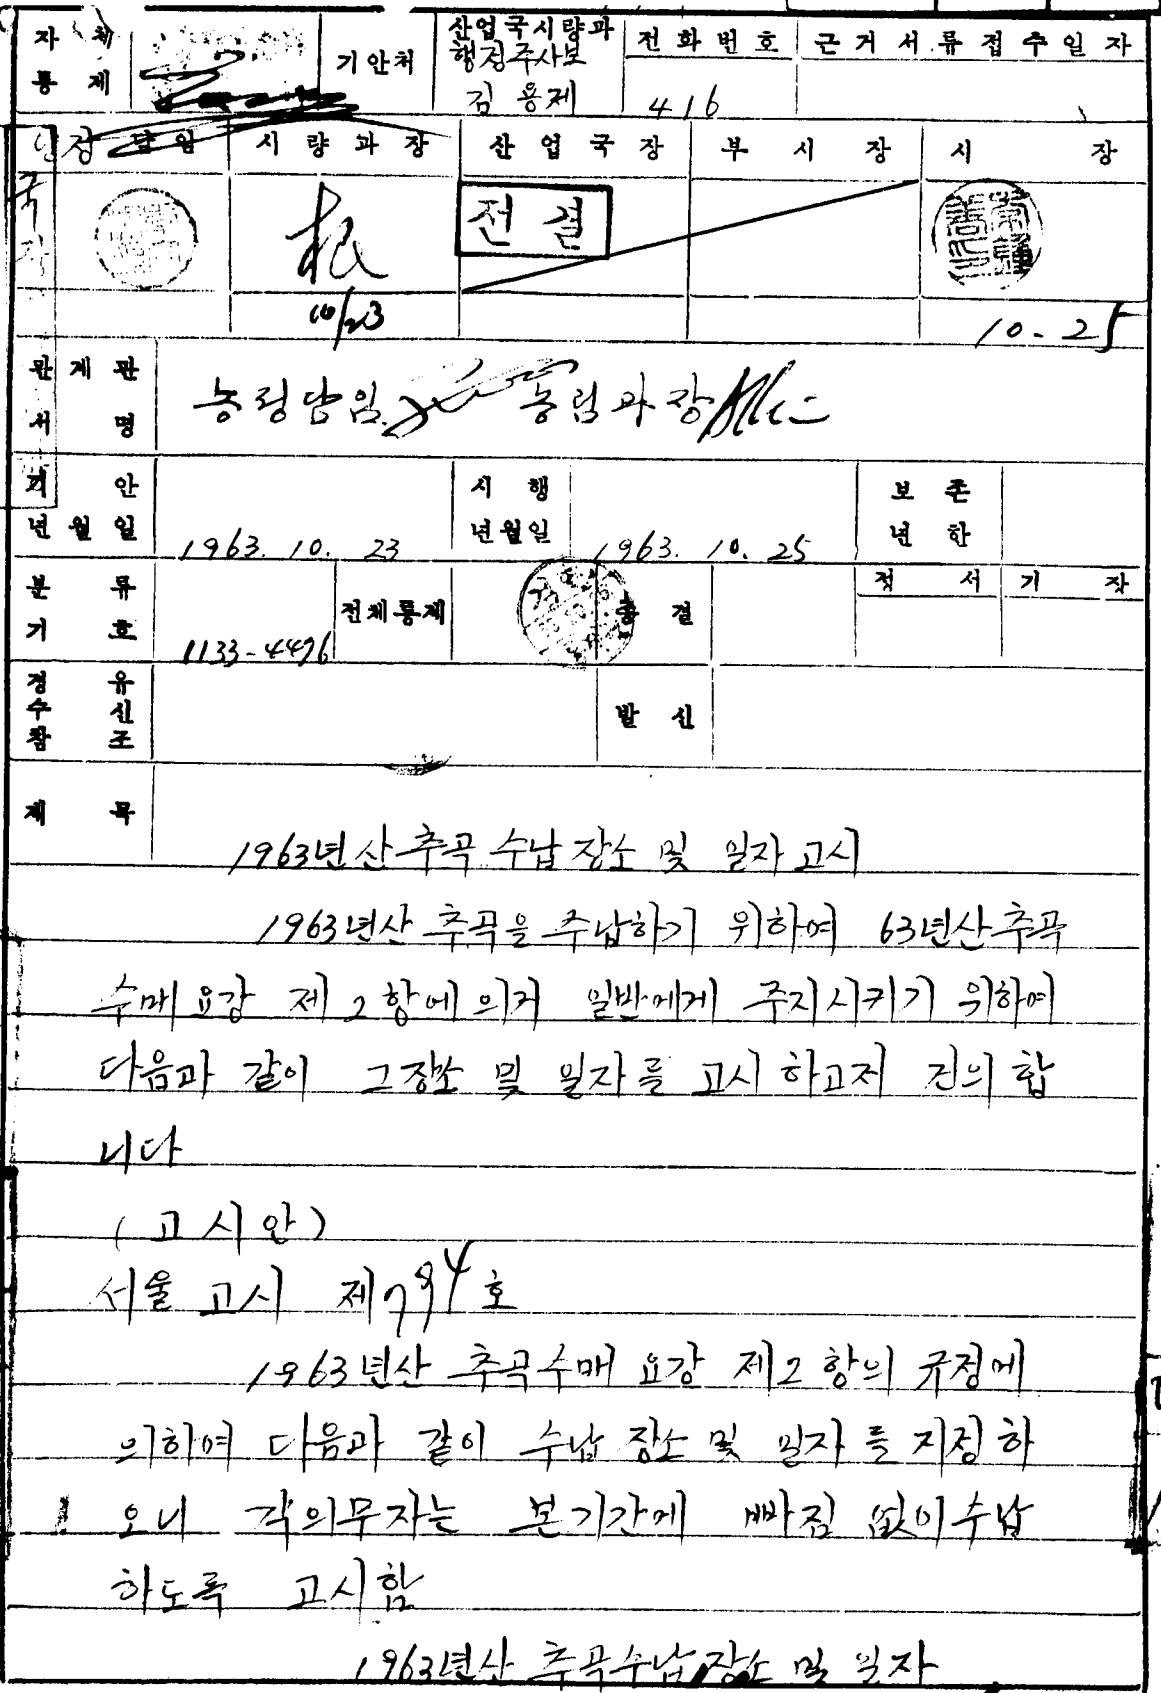 자 체 통 제
기안처
산업국시량과
행정주사보
김용제
전화번호
416
근거서류접수일자
담임
시량과장
산업국장
부시장
시장
국장
根
전결
10/23
10-25
관계관서명
농정담임
농림과장
기안년월일
1963. 10. 23
시행년월일
1963. 10. 25
보존년한
분류기호
1133-4496
전체통제
종결
정서
기장
경유수신참조
발신
제목
1963년산 추곡 수납 장소 및 일자 고시
1963년산 추곡을 수납하기 위하여 63년산 추곡
수매 요강 제2항에 의거 일반에게 주지시키기 위하여
다음과 같이 그 장소 및 일자를 고시 하고저 건의 합
니다
(고시안)
서울 고시 제794호
1963년산 추곡수매 요강 제2항의 규정에
의하여 다음과 같이 수납 장소 및 일자를 지정 하
오니 각의무자는 본기간에 빠짐 없이 수납
하도록 고시함
1963년산 추곡수납 장소 및 일자